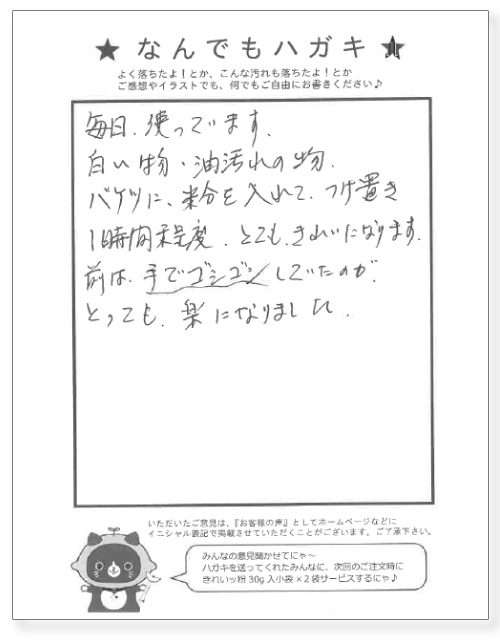 ★ なんでもハガキ ★
よく落ちたよ！とか、こんな汚れも落ちたよ！とか
ご感想やイラストでも、何でもご自由にお書きください♪
毎日、使っています。
白い物・油汚れの物、
バケツに、粉を入れて、つけ置き
1時間程度、とても、きれいになります。
前は、手でゴシゴシしていたのが、
とっても、楽になりました。
いただいたご意見は、『お客様の声』としてホームページなどに
イニシャル表記で掲載させていただくことがございます。ご了承下さい。
みんなの意見聞かせてにゃ～
ハガキを送ってくれたみんなに、次回のご注文時に
きれいッ粉 30g 入小袋 ×2 袋サービスするにゃ♪